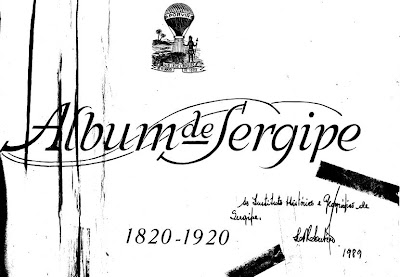 PORVIR
Album de Sergipe
Ao Instituto Histórico e Geográfico de
Sergipe.
1820-1920
1989